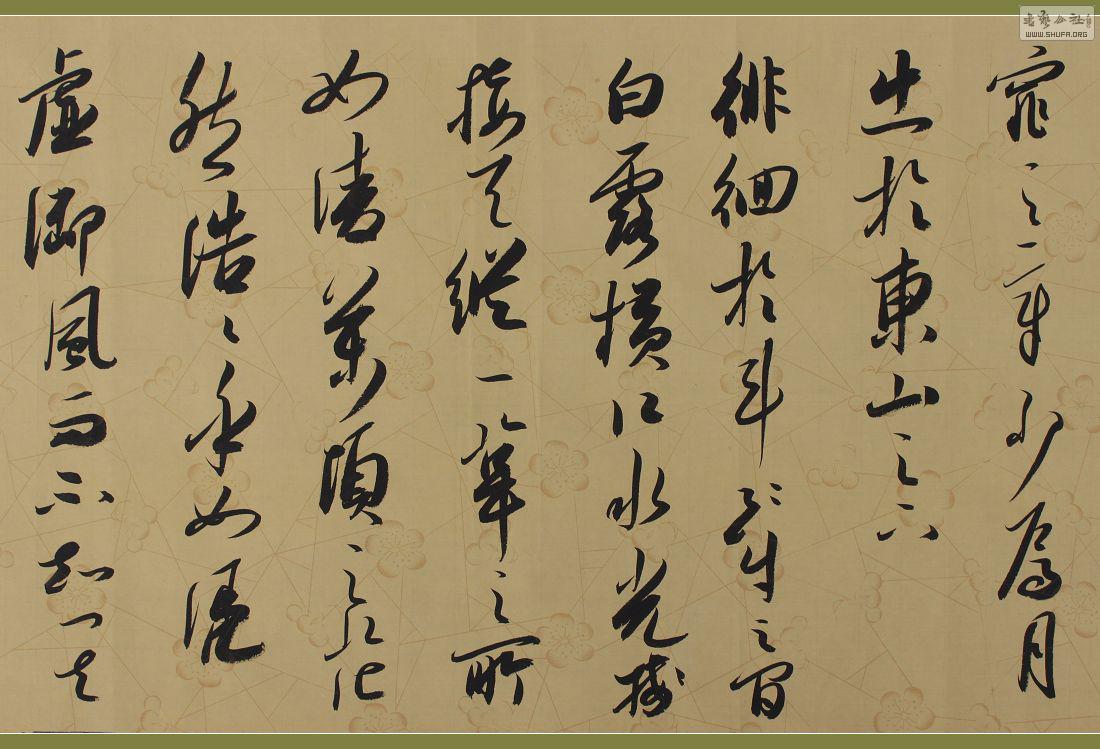 窕之章少焉月
出於東山之上
徘徊於斗之間
白露橫江水光
接天縱一葦之所
如凌萬頃之茫
然浩々乎如馮
虛御風而不知其
書藝公社
WWW.SHUFA.ORG